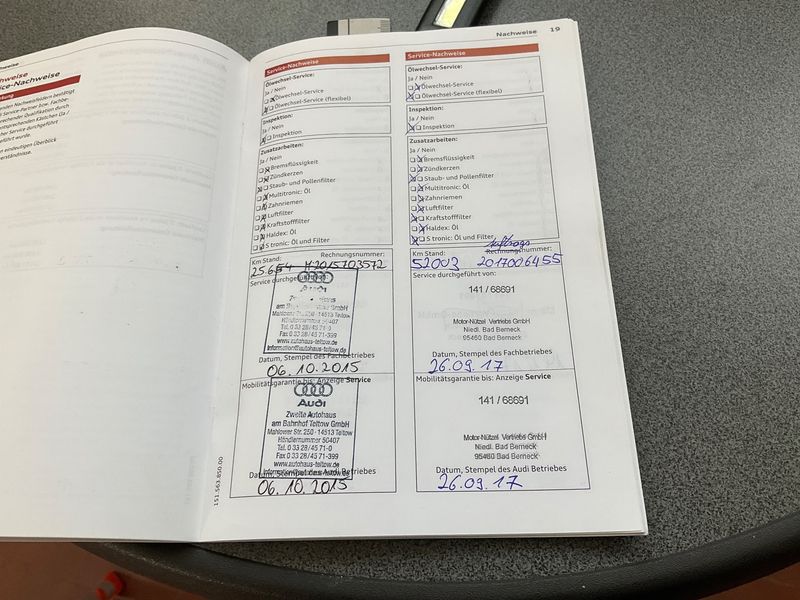 Nachweise
Service-Nachweise
Ölwechsel-Service:
Ja / Nein
Ölwechsel-Service
Ölwechsel-Service (flexibel)
Inspektion:
Ja / Nein
Inspektion
Zusatzarbeiten:
Ja / Nein
Bremsflüssigkeit
Zündkerzen
Staub- und Pollenfilter
Multitronic: Öl
Zahnriemen
Luftfilter
Kraftstofffilter
Haldex: Öl
S tronic: Öl und Filter
Km Stand: Rechnungsnummer:
25654 H2015703572
Service durchgeführt von:
Audi
Zweite Autohaus
am Bahnhof Teltow GmbH
Mahlower Str. 250 · 14513 Teltow
Händlernummer 50407
Tel. 0 33 28/45 71-0
Fax 0 33 28/45 71-399
www.autohaus-teltow.de
information@autohaus-teltow.de
Datum, Stempel des Fachbetriebes
06.10.2015
Mobilitätsgarantie bis: Anzeige Service
Audi
Zweite Autohaus
am Bahnhof Teltow GmbH
Mahlower Str. 250 · 14513 Teltow
Händlernummer 50407
Tel. 0 33 28/45 71-0
Fax 0 33 28/45 71-399
www.autohaus-teltow.de
Datum, Stempel des Audi Betriebes
06.10.2015
151.563.850.00
Nachweise 19
Service-Nachweise
Ölwechsel-Service:
Ja / Nein
Ölwechsel-Service
Ölwechsel-Service (flexibel)
Inspektion:
Ja / Nein
Inspektion
Zusatzarbeiten:
Ja / Nein
Bremsflüssigkeit
Zündkerzen
Staub- und Pollenfilter
Multitronic: Öl
Zahnriemen
Luftfilter
Kraftstofffilter
Haldex: Öl
S tronic: Öl und Filter
Auftrags
Km Stand: Rechnungsnummer:
52003 2017006455
Service durchgeführt von:
141 / 68691
Motor-Nützel Vertriebs GmbH
Niedl. Bad Berneck
95460 Bad Berneck
Datum, Stempel des Fachbetriebes
26.09.17
Mobilitätsgarantie bis: Anzeige Service
141 / 68691
Motor-Nützel Vertriebs GmbH
Niedl. Bad Berneck
95460 Bad Berneck
Datum, Stempel des Audi Betriebes
26.09.17